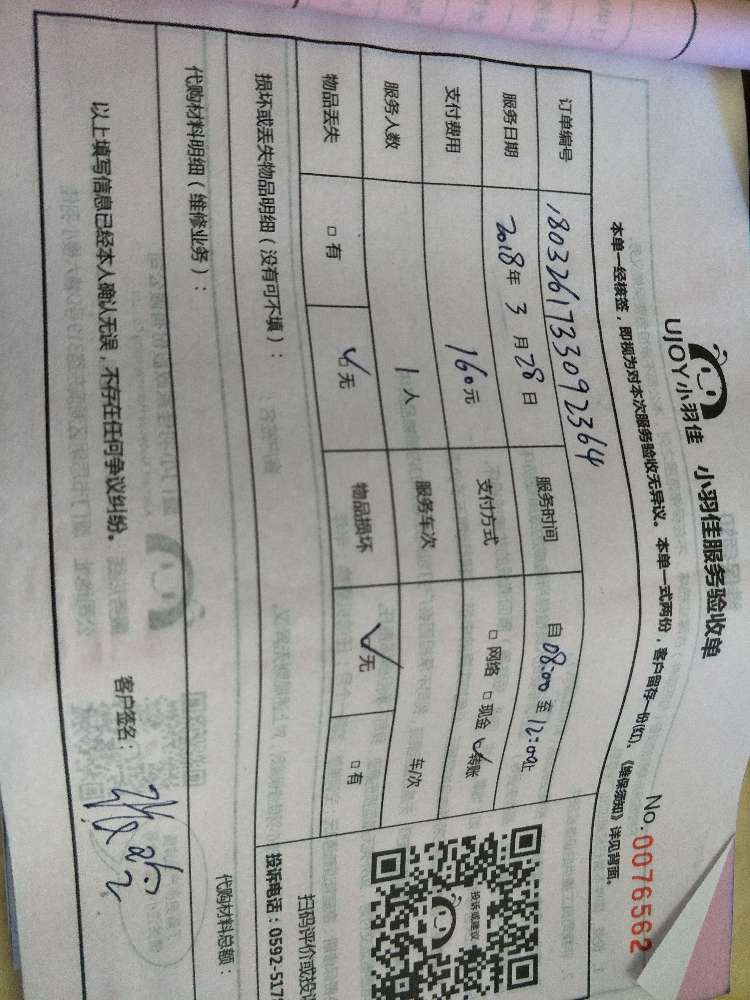 UJOY小羽佳 小羽佳服务验收单
No.0076562
本单一经核签，即视为对本次服务验收无异议。本单一式两份，客户留存一份(红)。《维保须知》详见背面。
订单编号 1803261733092364
服务日期 2018年3月28日 服务时间 自08:00至12:00止
支付费用 160元 支付方式 □网络 □现金 ☑转账
服务人数 1人 服务车次 车/次
物品丢失 □有 ☑无 物品损坏 ☑无 □有
损坏或丢失物品明细（没有可不填）：
代购材料明细（维修业务）：
代购材料总额：
投诉或建议
扫码评价或投诉
投诉电话：0592-517
以上填写信息已经本人确认无误，不存在任何争议纠纷。
客户签名：